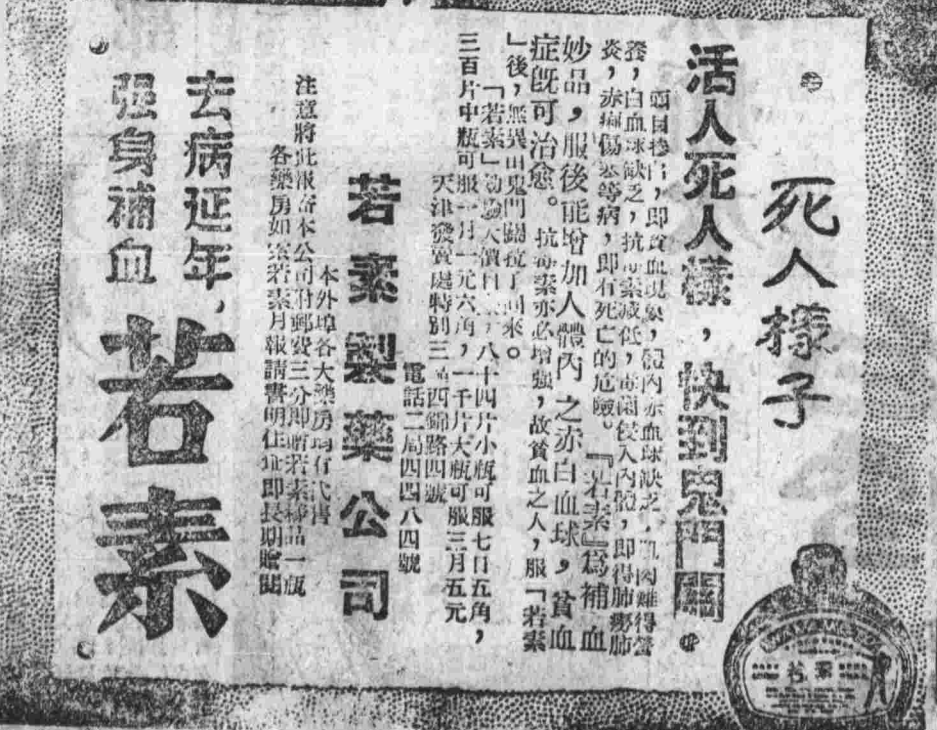 死人樣子
活人死人樣,快到鬼門關
面目慘白,即貧血現象,體內赤血球缺乏,血肉難得營
養,白血球缺乏,抗毒素減低,毒菌侵入內體,即得肺癆肺
炎,赤痢傷寒等病,即有死亡的危險。『若素』為補血
妙品,服後能增加人體內之赤白血球,貧血
症既可治愈。抗毒素亦必增強,故貧血之人,服「若素
」後,無異由鬼門關拔了回來。
「若素」八十四片小瓶可服七日五角,
三百片中瓶可服一月一元六角,一千片大瓶可服三月五元
天津發賣處特別三區四錦路四號
電話二局四四八四號
若素製藥公司
本外埠各大藥房均有代售
注意將此報寄本公司付郵費三分即贈若素樣品一瓶
各藥房如索若素月報請書明住址即長期贈閱
去病延年,
强身補血
若素
若素